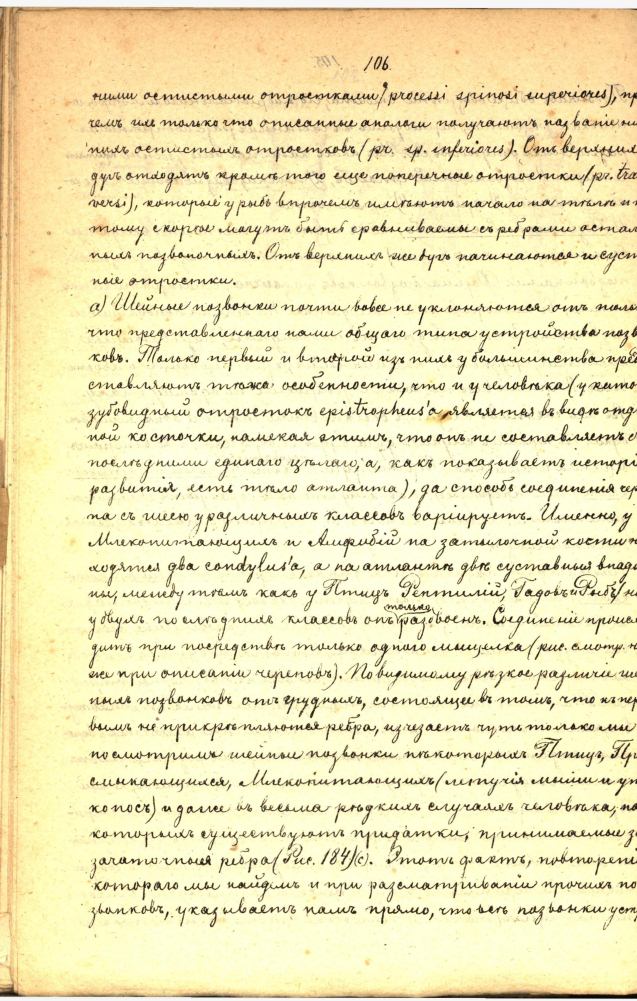 106
ними остистыми отростками (processi spinosi superiores), пр
чемъ ихъ только что описанные аналоги получаютъ названіе ни
нихъ остистыхъ отростковъ (pr. sp. inferiores). Отъ верхних
дугъ отходятъ кромѣ того еще поперечные отростки (pr. tra
versi), которые у рыбъ впрочемъ имѣютъ начало на тѣлѣ и п
тому скорѣе могутъ быть сравниваемы съ ребрами остал
ныхъ позвоночныхъ. Отъ верхнихъ же дугъ начинаются и суст
ные отростки.
а) Шейные позвонки почти вовсе не уклоняются отъ толь
что представленнаго нами общаго типа устройства позв
ковъ. Только первый и второй изъ нихъ у большинства пред
ставляютъ тѣже особенности, что и у человѣка (у кото
зубовидный отростокъ epistropheus'a, является въ видѣ отд
ной косточки, намекая этимъ, что онъ не составляетъ съ
послѣдними единаго цѣлаго, а, какъ показываетъ исторі
развитія, есть тѣло атланта), да способъ соединенія чер
па съ шеею у различныхъ классовъ варіируетъ. Именно, у
Млекопитающихъ и Амфибій на затылочной кости н
ходятся два condylus'a, а на атлантѣ двѣ суставныя впади
ны, между тѣмъ какъ у Птицъ, Рептилій, Гадовъ и Рыбъ (н
у двухъ послѣднихъ классовъ онъ только раздвоенъ. Соединеніе происх
дитъ при посредствѣ только одного мыщелка (рис. смотр. н
же при описаніи череповъ). Повидимому рѣзкое различіе ше
ныхъ позвонковъ отъ грудныхъ, состоящее въ томъ, что къ пер
вымъ не прикрѣпляются ребра, изчезаетъ чуть только мы
посмотримъ шейные позвонки нѣкоторыхъ Птицъ, Пре
смыкающихся, Млекопитающихъ (летучія мыши и ут
коносъ) и даже въ весьма рѣдкихъ случаяхъ человѣка, на
которыхъ существуютъ придатки, принимаемые за
зачаточныя ребра (Рис. 184)(с). Этотъ фактъ, повтореніе
котораго мы найдемъ и при разсматриваніи прочихъ по
звонковъ, указываетъ намъ прямо, что всѣ позвонки устр